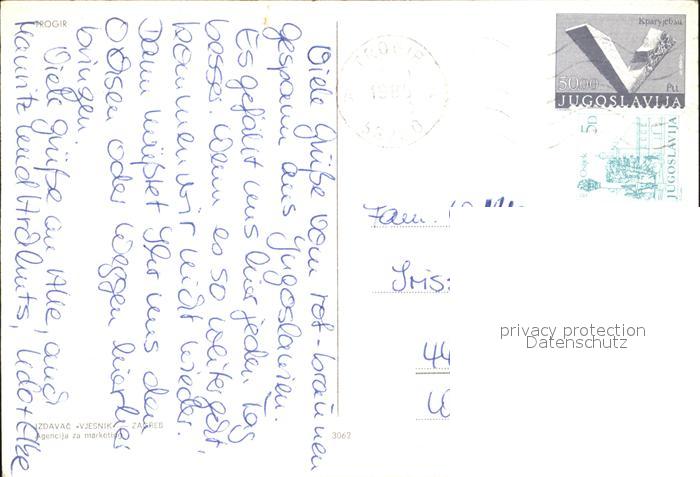 TROGIR
Viele Grüße vom rot-braunen
gespann aus Jugoslawien.
Es gefällt uns hier jeden Tag
besser. Wenn es so weitergeht,
kommen wir nicht wieder.
Dann müßtet Ihr uns den
Ochsen oder Waggen hierher
bringen.
Viele grüße an Alle, auch
Mauritz und
IZDAVAČ «VJESNIK» ZAGREB
Agencija za marketing
3062
TROGIR
50.00
JUGOSLAVIJA
5 D
Osijek
JUGOSLAVIJA
Fam.
Iris
44
privacy protection
Datenschutz